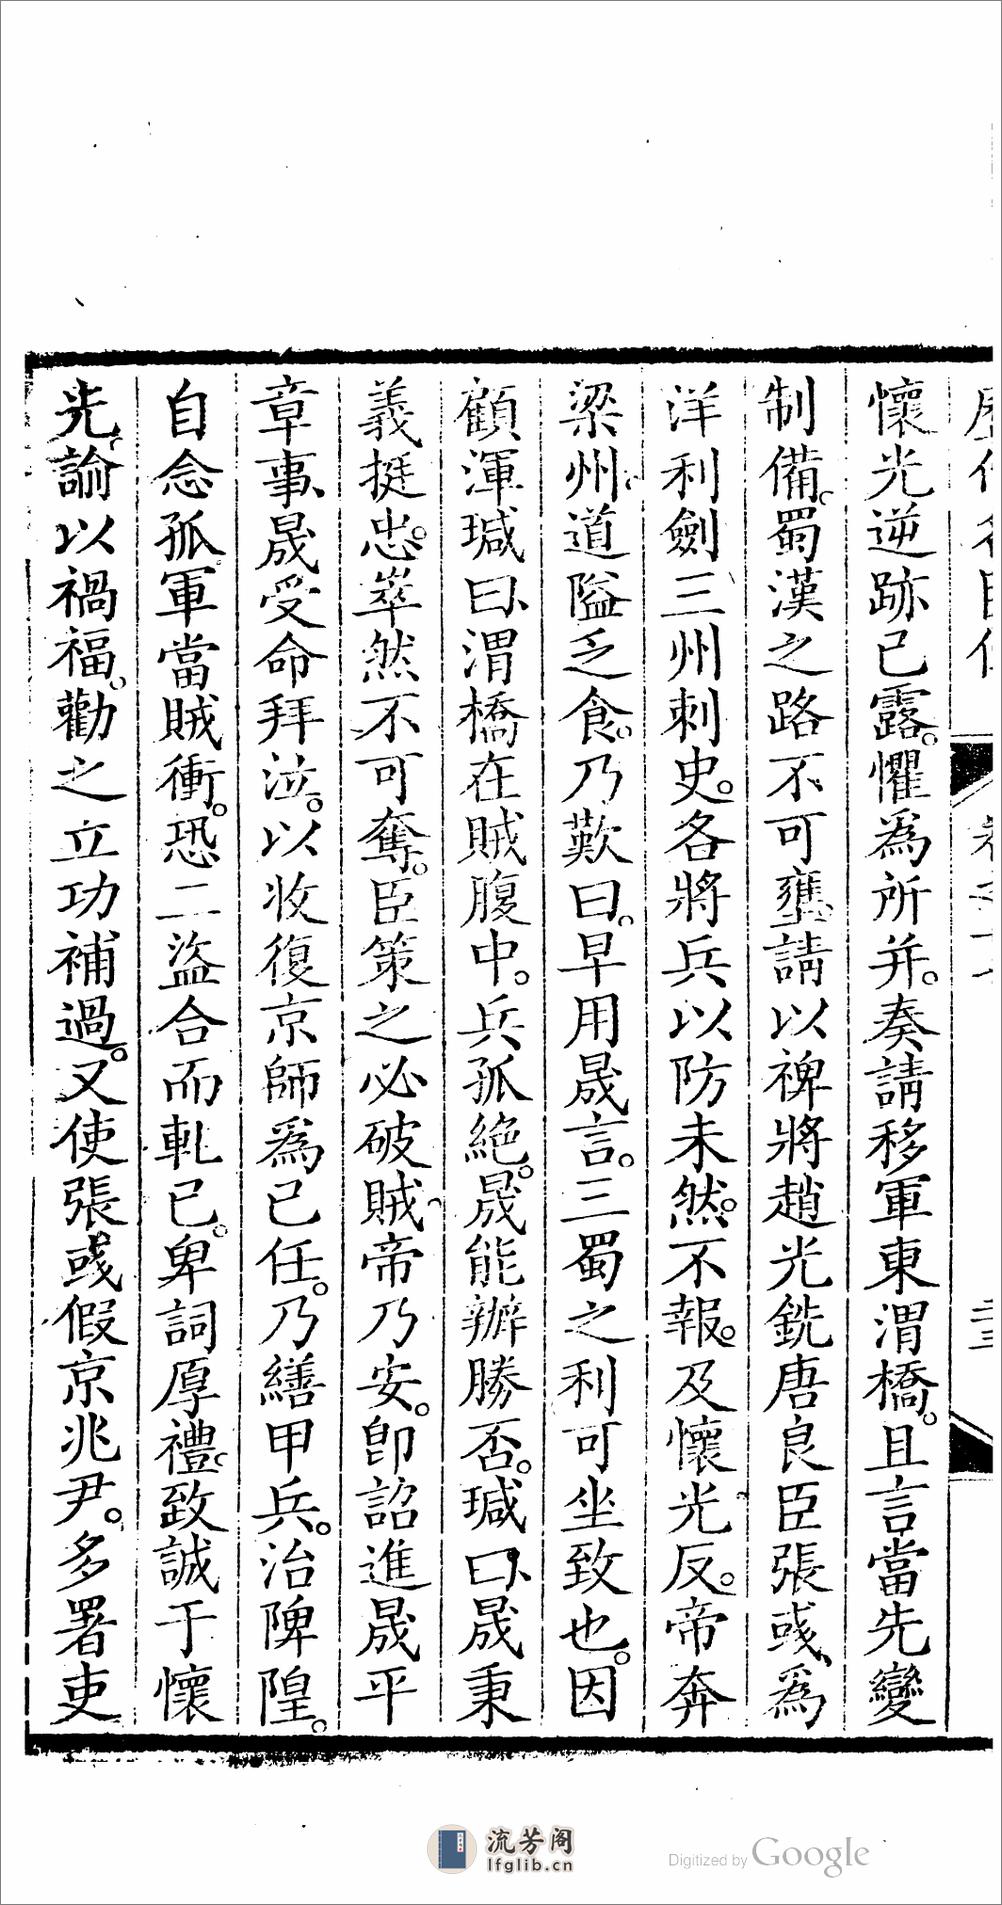 懷光逆跡已露。懼為所并。奏請移軍東渭橋。且言當先變
制備。蜀漢之路不可壅。請以裨將趙光銑唐良臣張彧、為
洋利劍三州刺史。各將兵以防未然。不報。及懷光反。帝奔
梁州。道隘乏食。乃歎曰。早用晟言。三蜀之利可坐致也。因
顧渾瑊曰、渭橋在賊腹中。兵孤絕。晟能辦勝否。瑊曰、晟秉
義挺忠。崒然不可奪。臣策之必破賊。帝乃安。卽詔進晟平
章事、晟受命拜泣。以收復京師爲己任。乃繕甲兵。治陴隍。
自念孤軍當賊衝。恐二盜合而軋己。卑詞厚禮。致誠于懷
光。諭以禍福。勸之立功補過。又使張彧假京兆尹。多署吏
流芳阁
lfglib.cn
Digitized by Google